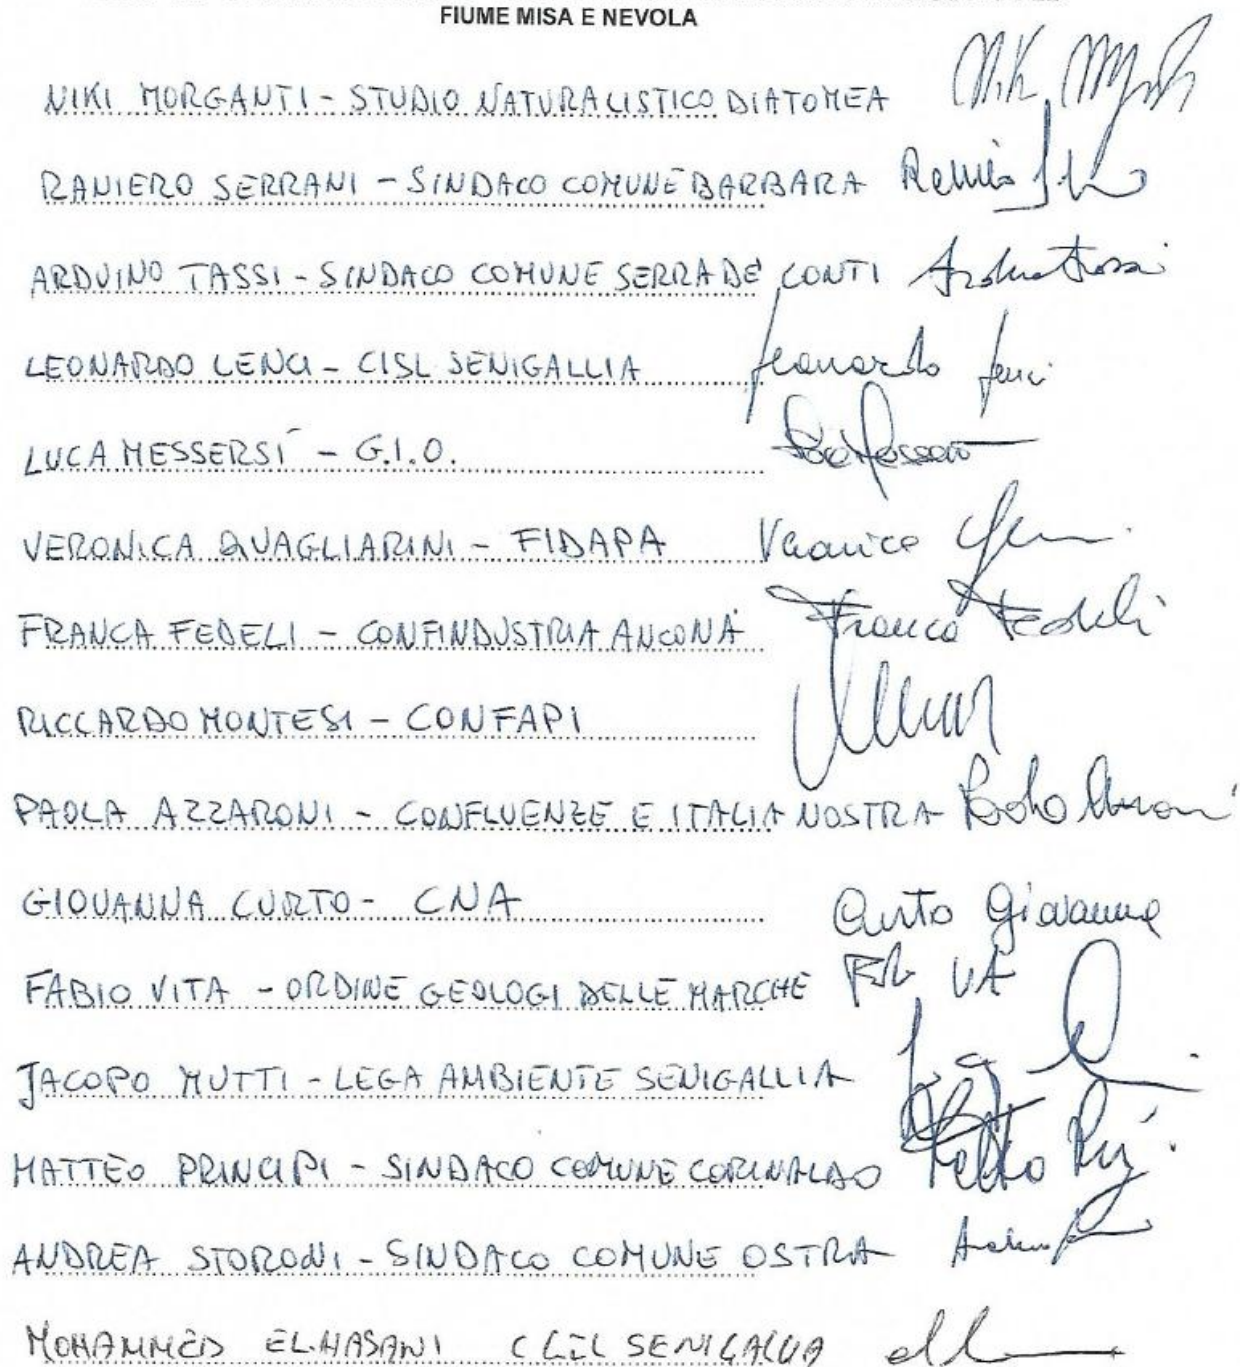 FIUME MISA E NEVOLA
NIKI MORGANTI - STUDIO NATURALISTICO DIATOMEA
RANIERO SERRANI - SINDACO COMUNE BARBARA
ARDUINO TASSI - SINDACO COMUNE SERRA DE' CONTI
LEONARDO LENCI - CISL SENIGALLIA Leonardo Lenci
LUCA MESSERSÍ - G.I.O.
VERONICA QUAGLIARINI - FIDAPA Veronica
FRANCA FEDELI - CONFINDUSTRIA ANCONA Franca Fedeli
RICCARDO MONTESI - CONFAPI
PAOLA AZZARONI - CONFLUENZE E ITALIA NOSTRA
GIOVANNA CURTO - CNA Curto Giovanna
FABIO VITA - ORDINE GEOLOGI DELLE MARCHE
JACOPO MUTTI - LEGA AMBIENTE SENIGALLIA
MATTEO PRINCIPI - SINDACO COMUNE CORINALDO
ANDREA STORONI - SINDACO COMUNE OSTRA
MOHAMMED EL HASANI SENIGALLIA